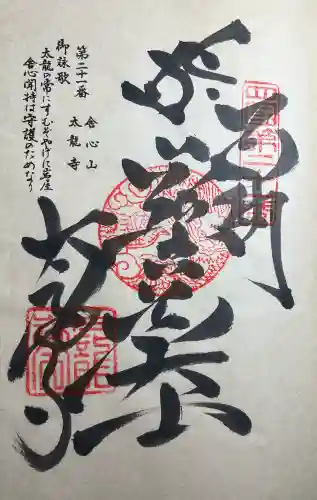 奉納
虚空蔵
太龍寺
第二十一番
舎心山
太龍寺
御詠歌
太龍の常にすむぞやげに岩屋
舎心聞持は守護のためなり